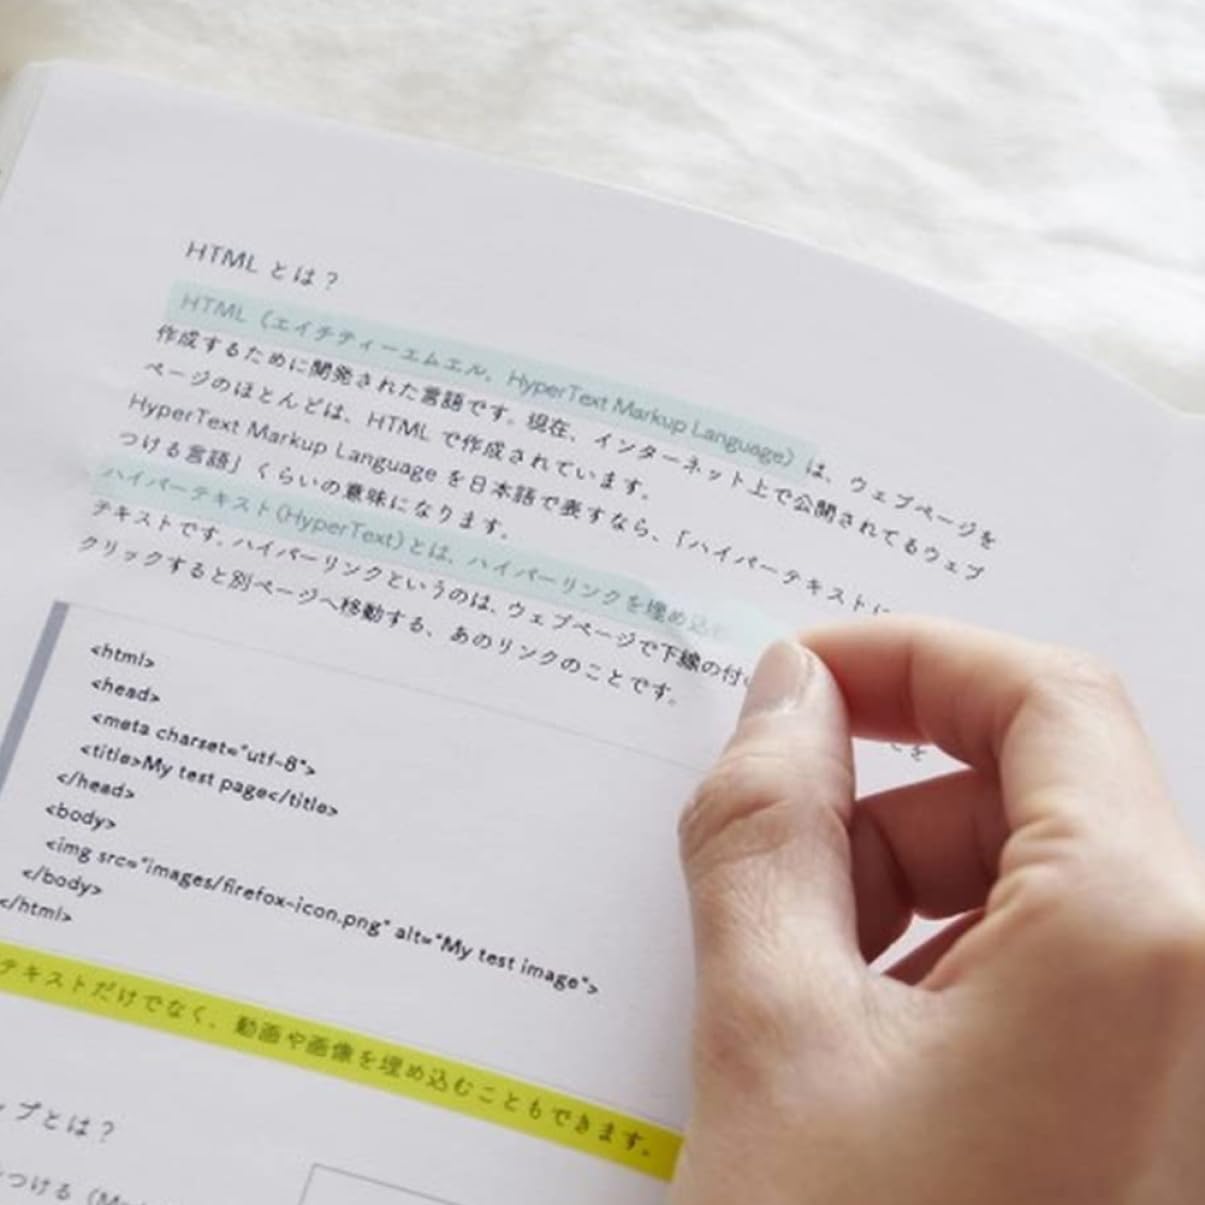 HTML とは？
HTML（エイチティーエムエル、HyperText Markup Language）は、ウェブページを
作成するために開発された言語です。現在、インターネット上で公開されてるウェブ
ページのほとんどは、HTML で作成されています。
HyperText Markup Language を日本語で表すなら、「ハイパーテキストに
つける言語」くらいの意味になります。
ハイパーテキスト(HyperText)とは、ハイパーリンクを埋め込む
テキストです。ハイパーリンクというのは、ウェブページで下線の付い
クリックすると別ページへ移動する、あのリンクのことです。
<html>
<head>
<meta charset="utf-8">
<title>My test page</title>
</head>
<body>
<img src="images/firefox-icon.png" alt="My test image">
</body>
</html>
テキストだけでなく、動画や画像を埋め込むこともできます。
プとは？
つける（M